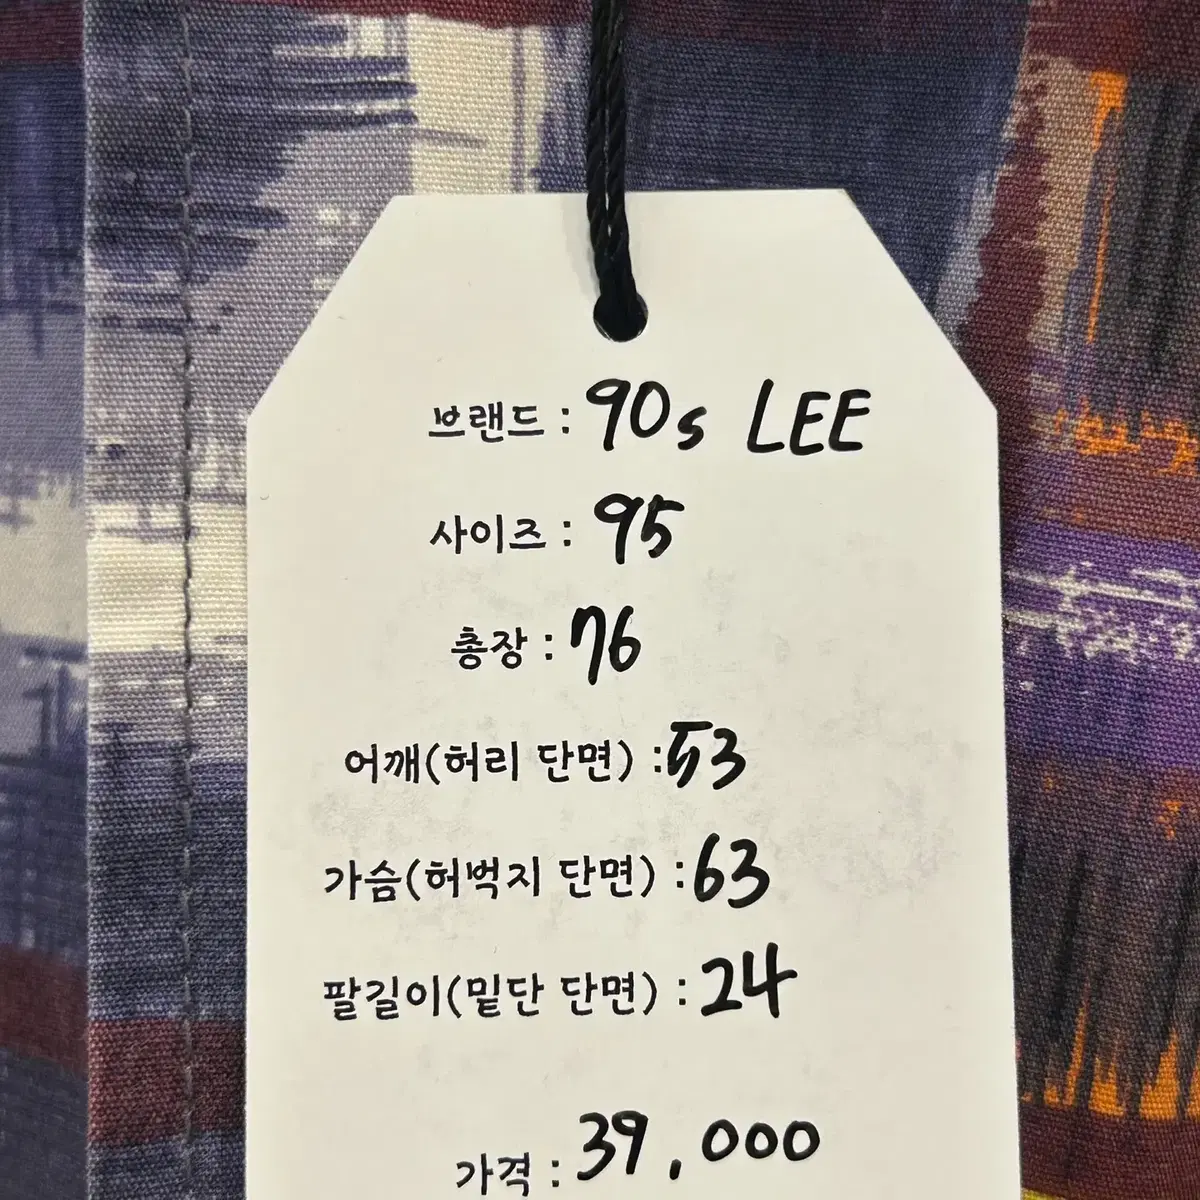 브랜드 : 90s LEE
사이즈 : 95
총장 : 76
어깨(허리 단면) : 53
가슴(허벅지 단면) : 63
팔길이(밑단 단면) : 24
가격 : 39,000